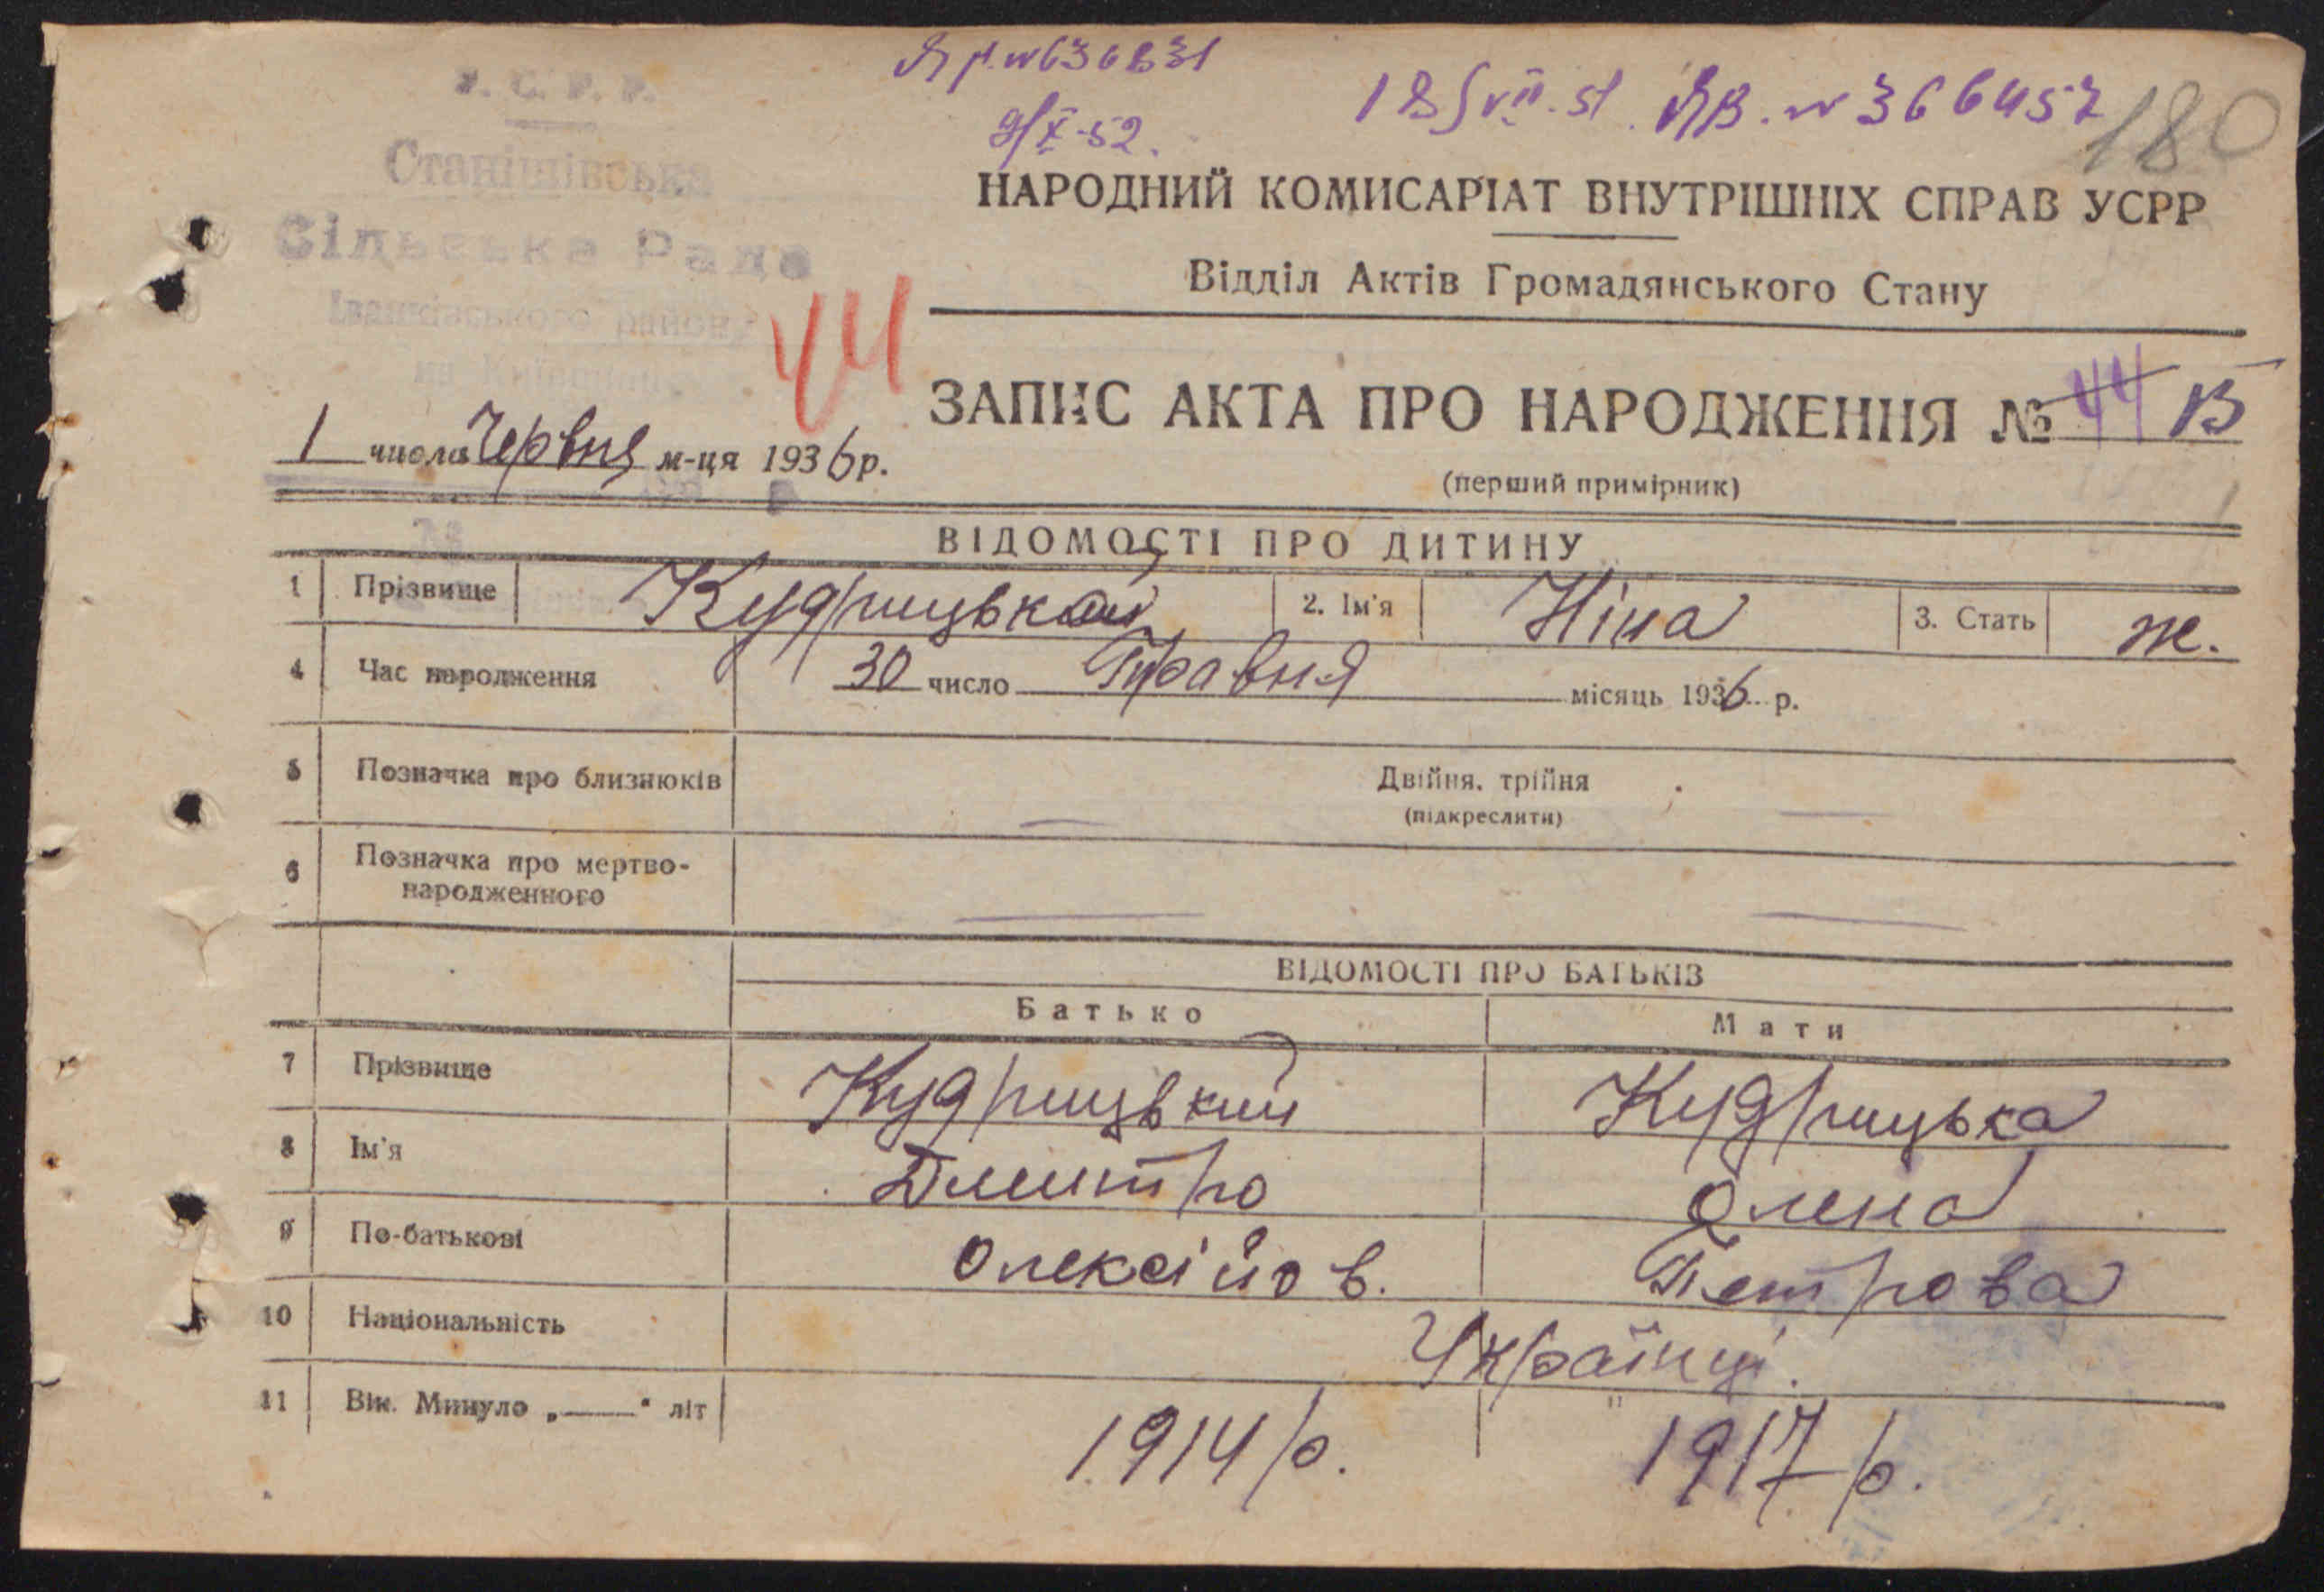 У. С. Р. Р.
Станішівська
Сільська Рада
Іванківського району
на Київщині
9/X-52.
18/VII.51. ЯВ. № 366457
180
НАРОДНИЙ КОМИСАРІАТ ВНУТРІШНІХ СПРАВ УСРР
Відділ Актів Громадянського Стану
44
ЗАПИС АКТА ПРО НАРОДЖЕННЯ № 44 13
1 числа Червня м-ця 1936 р.
(перший примірник)
ВІДОМОСТІ ПРО ДИТИНУ
1 Прізвище Кудрицька 2. Ім'я Ніна 3. Стать ж.
4 Час народження 30 число Травня місяць 1936 р.
5 Позначка про близнюків Двійня, трійня —
(підкреслити)
6 Позначка про мертво-
народженного — —
ВІДОМОСТІ ПРО БАТЬКІВ
Батько Мати
7 Прізвище Кудрицький Кудрицька
8 Ім'я Дмитро Олена
9 По-батькові Олексійов. Петрова
10 Національність Українці.
11 Вік. Минуло „——“ літ 1914 р. 1917 р.